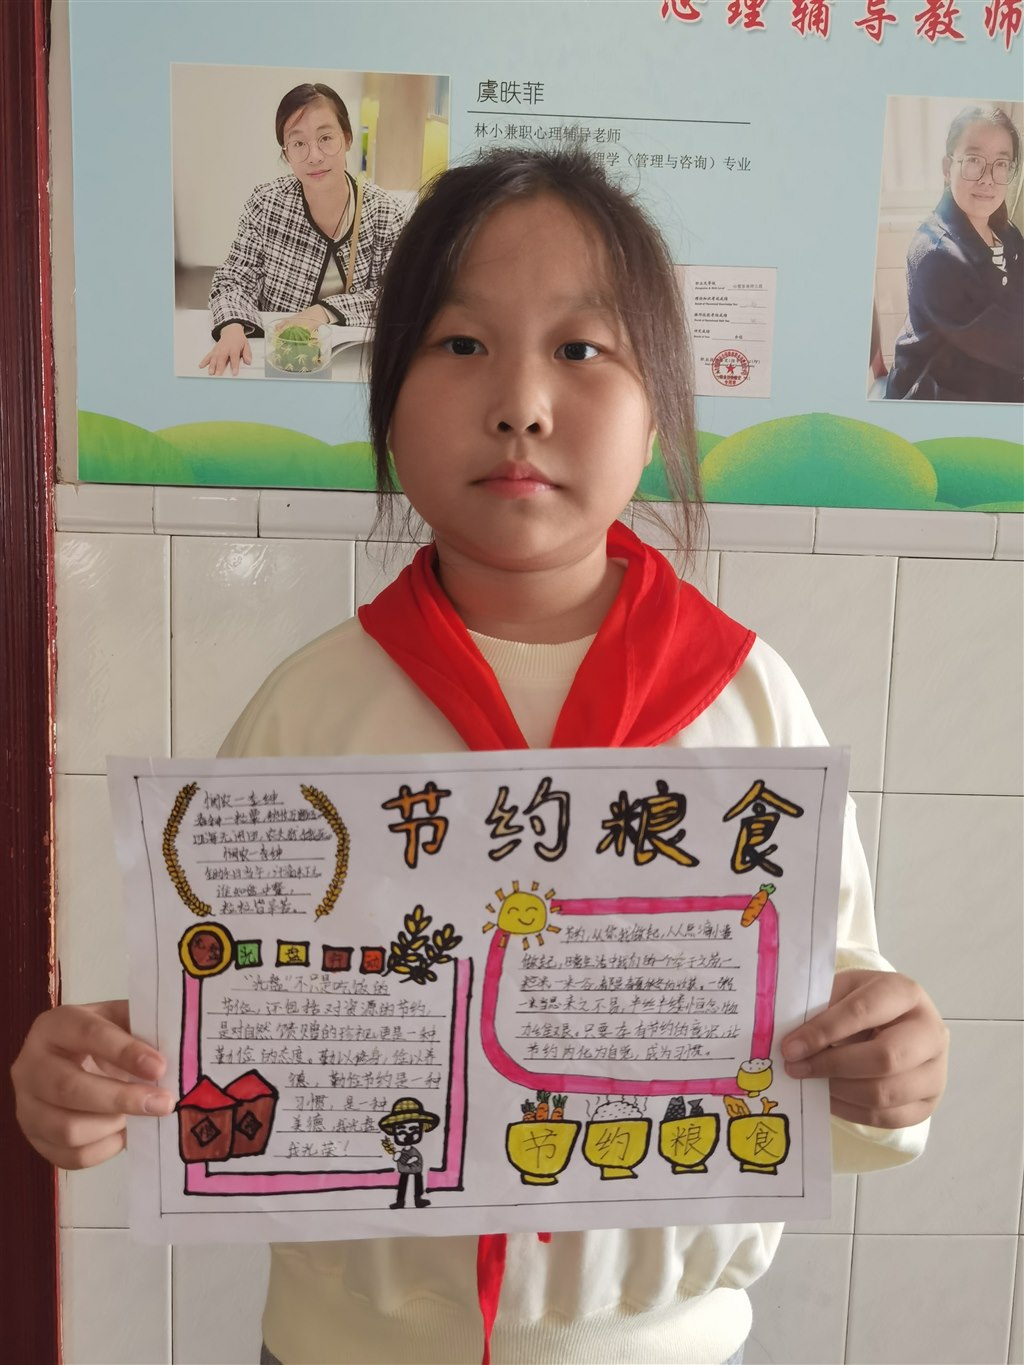 心理辅导教师
虞昳菲
林小兼职心理辅导老师
理学（管理与咨询）专业
节约粮食
悯农一李绅
春种一粒粟，秋收万颗子。
四海无闲田，农夫犹饿死。
悯农一李绅
锄禾日当午，汗滴禾下土。
谁知盘中餐，
粒粒皆辛苦。
光盘
光盘行动
"光盘"不只是吃饭的
节俭，还包括对资源的节约，
是对自然馈赠的珍视，更是一种
勤俭的态度。勤以修身，俭以养
德，勤俭节约是一种
习惯，是一种
美德，我光盘
我光荣！
节约，从你我做起，人人点滴小事
做起，
一粥
一来当思来之不易，半丝半缕恒念物
力维艰。只要存有节约的意识，让
节约内化为自觉，成为习惯。
节约粮食